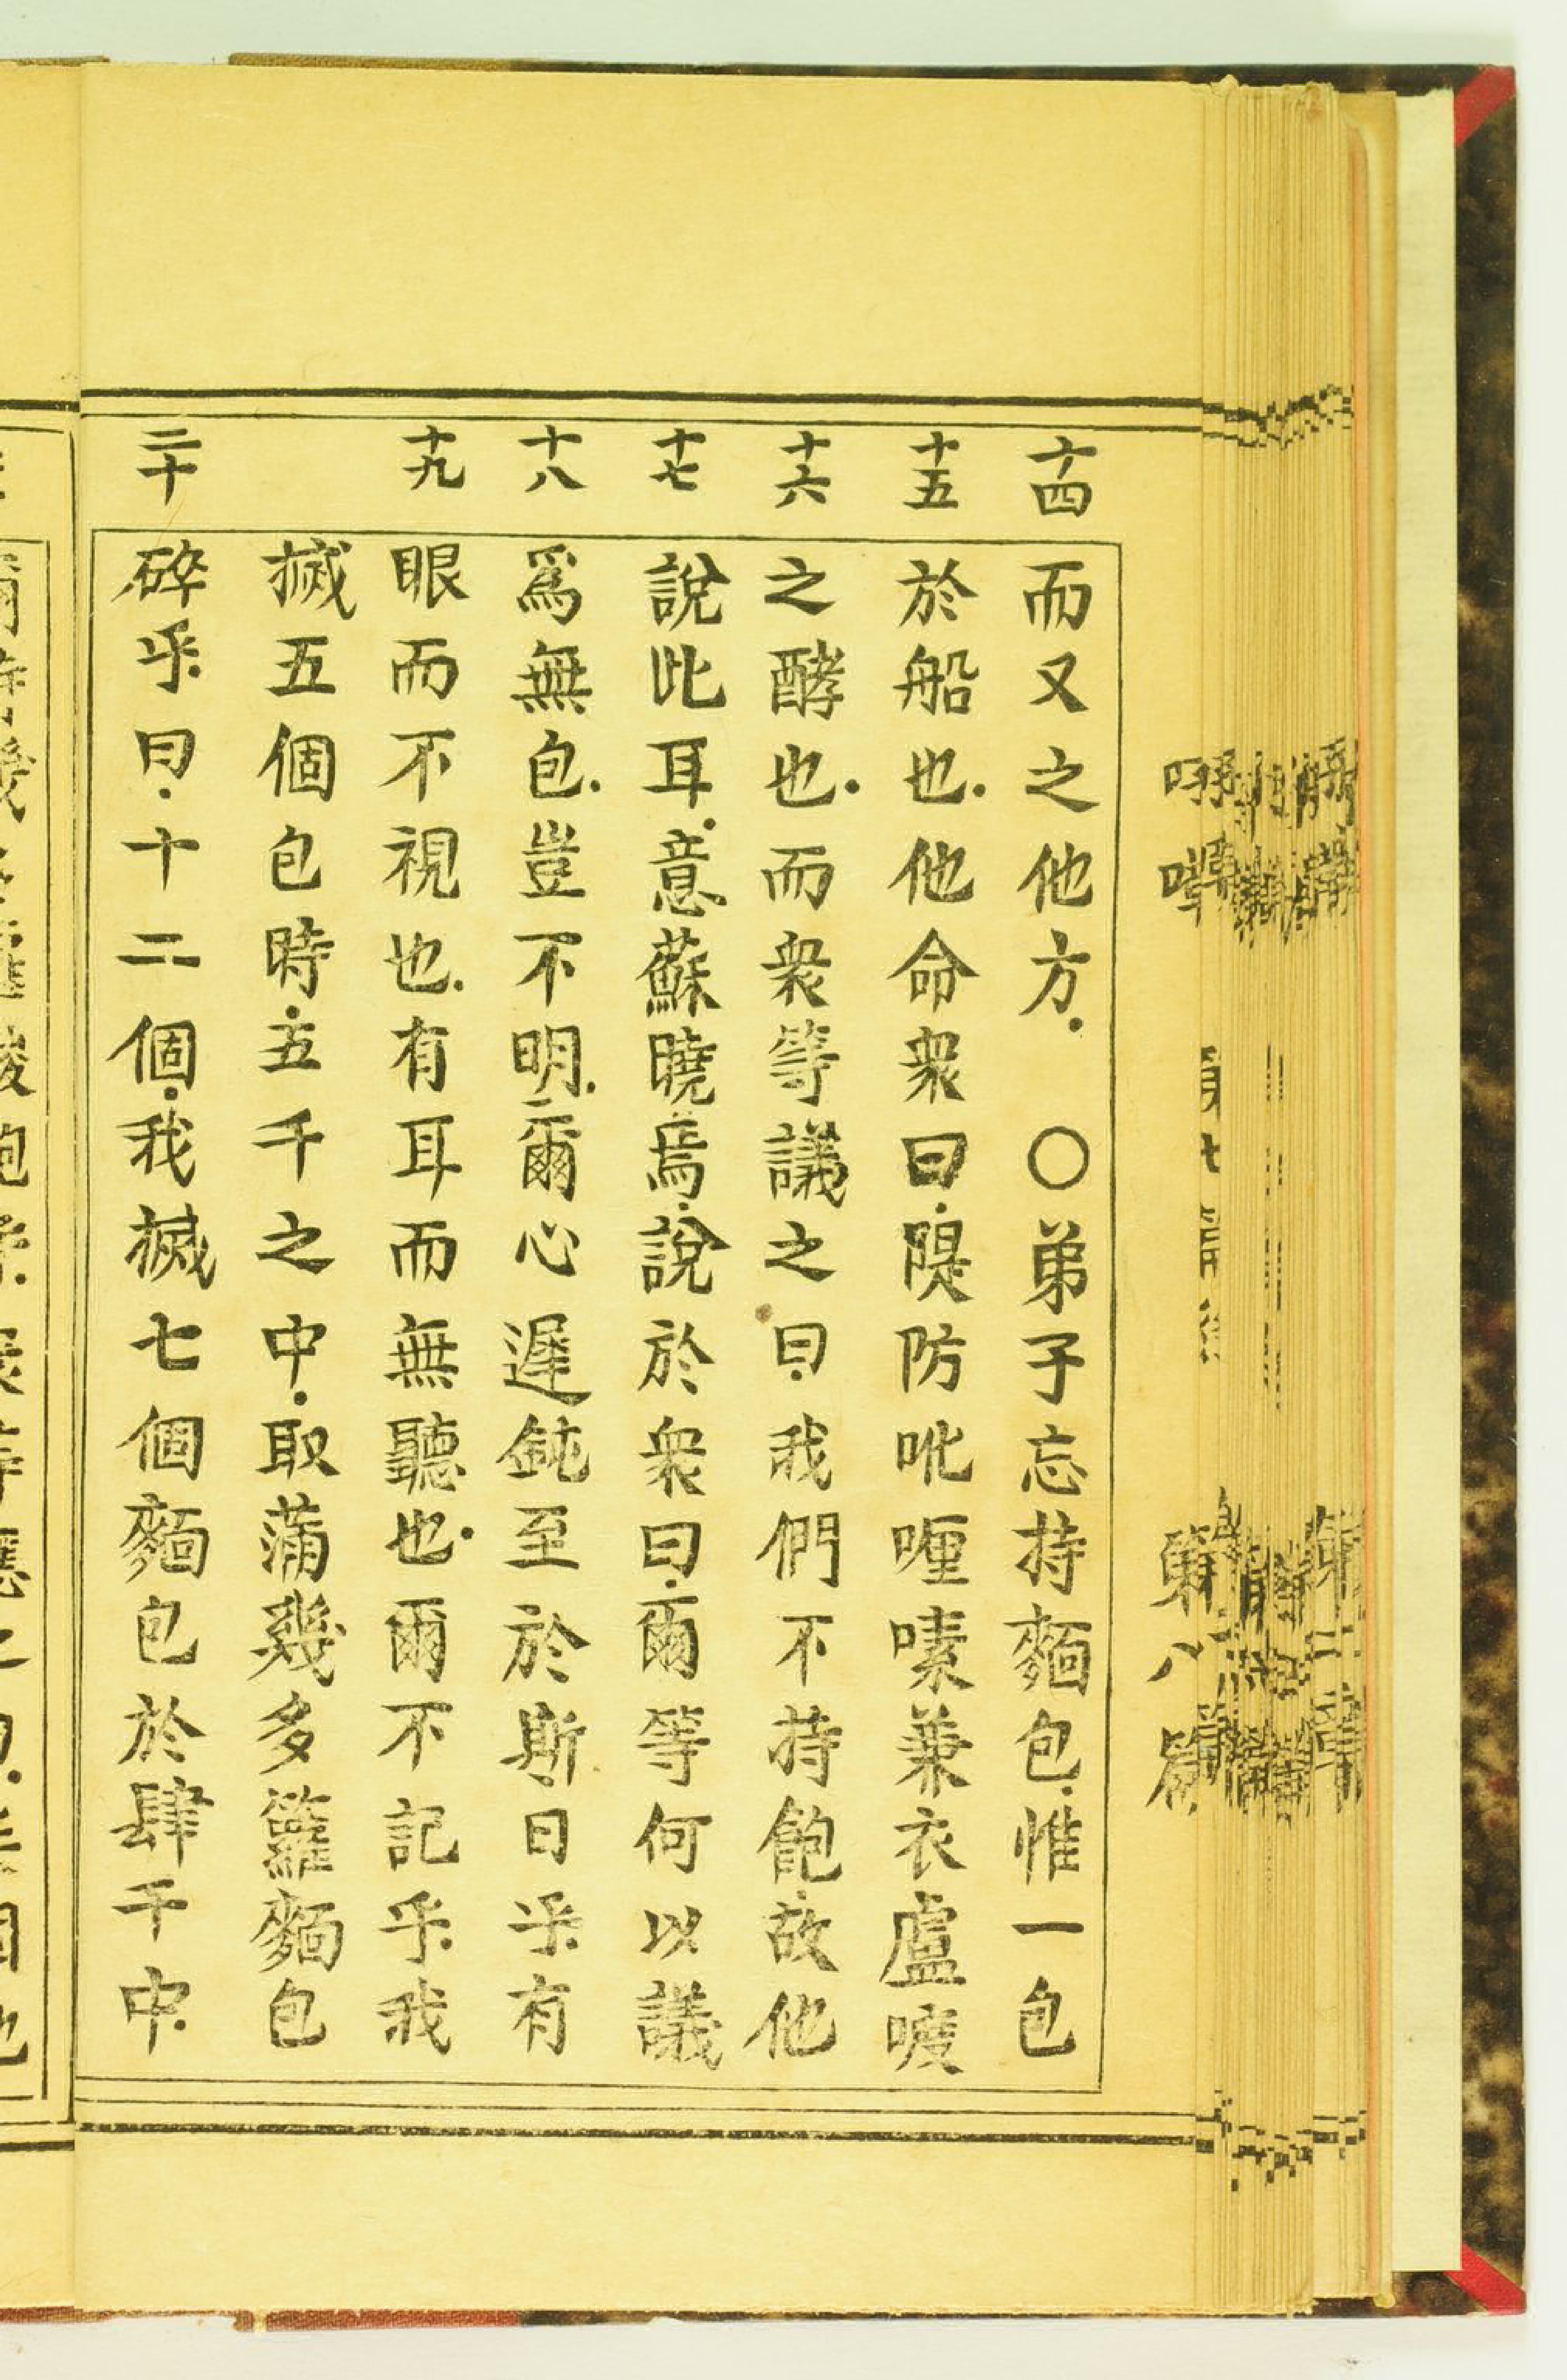 十四 而又之他方. ○弟子忘持麵包.惟一包
十五 於船也.他命衆曰.隄防吡𠼖嗉兼衣盧唆
十六 之酵也.而衆等議之曰.我們不持飽.故他
十七 說此耳.意蘇曉焉.說於衆曰.爾等何以議
十八 爲無包.豈不明.爾心遲鈍至於斯.曰乎.有
十九 眼而不視也.有耳而無聽也.爾不記乎.我
搣五個包時.五千之中.取滿幾多籮麵包
二十 碎乎.曰.十二個.我搣七個麵包於肆千中.
第八篇